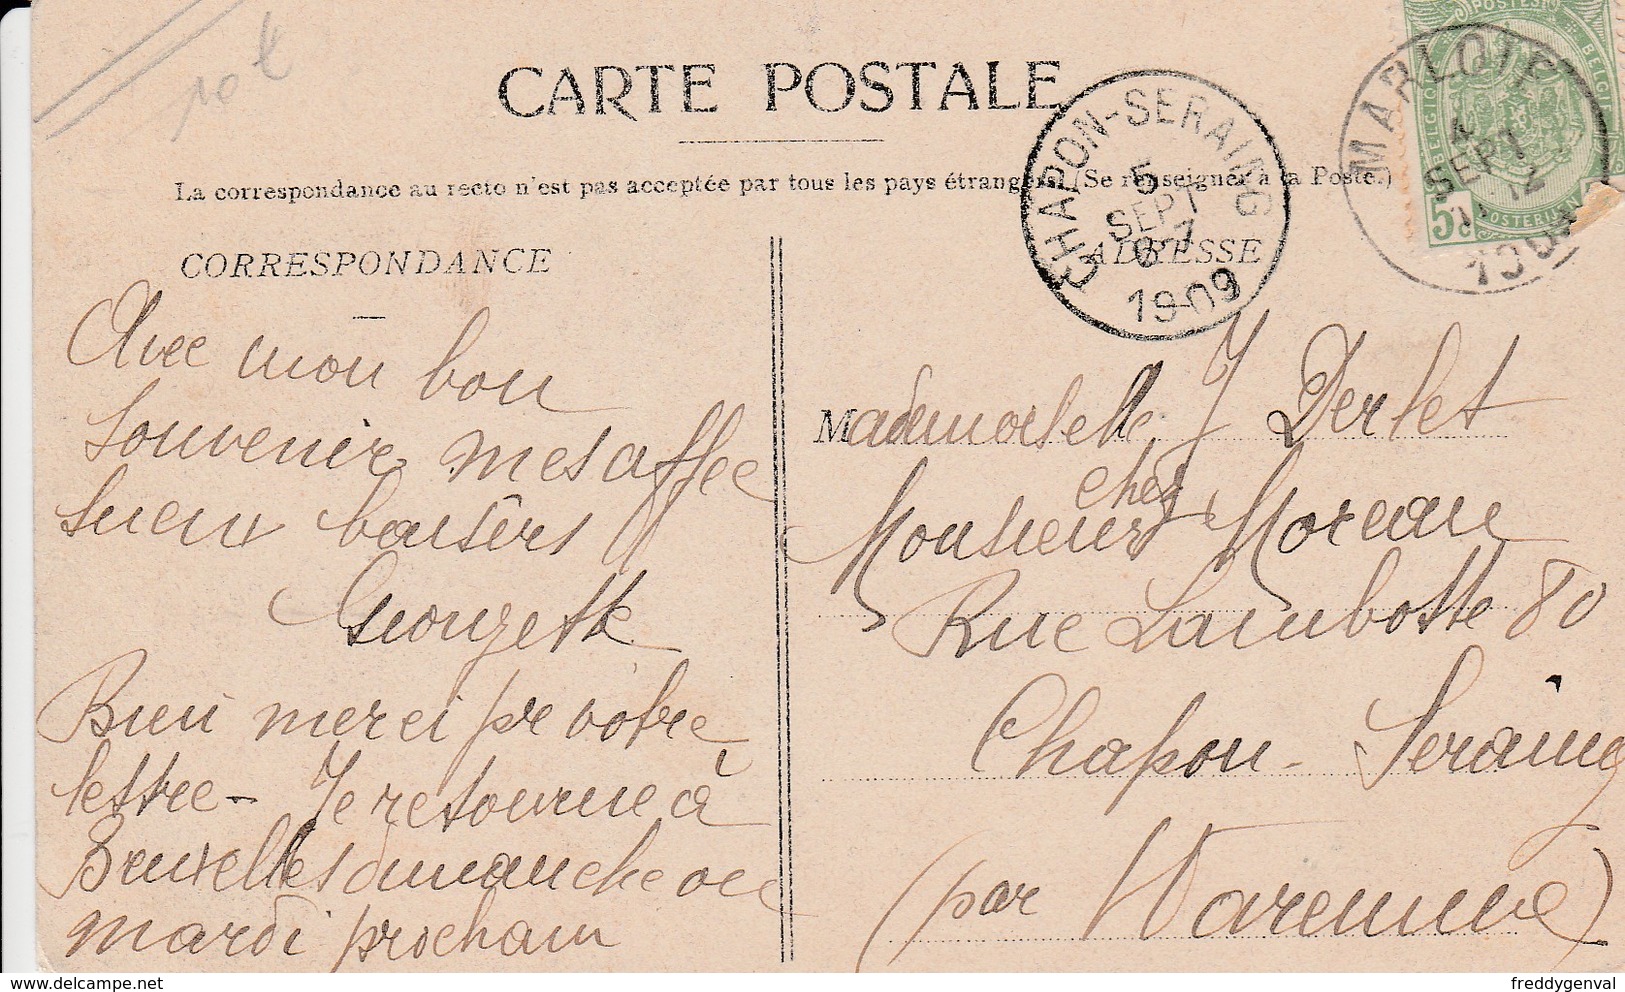 10 €
CARTE POSTALE
La correspondance au recto n'est pas acceptée par tous les pays étrangers. (Se renseigner à la Poste.)
CORRESPONDANCE
Avec mon bon
souvenir mes affec
tueux baisers
Georgette
Bien merci pr votre
lettre - Je retourne à
Bruxelles dimanche ou
mardi prochain
CHAPON-SERAING
5
SEPT
6-7
1909
MARLOIE
4
SEPT
11-12
POSTES
BELGIQUE
BELGIE
POSTERIJEN
5c
ADRESSE
Mademoiselle J Derlet
chez
Monsieur Moreau
Rue Lambotte 80
Chapon - Seraing
(par Waremme)
freddygenval